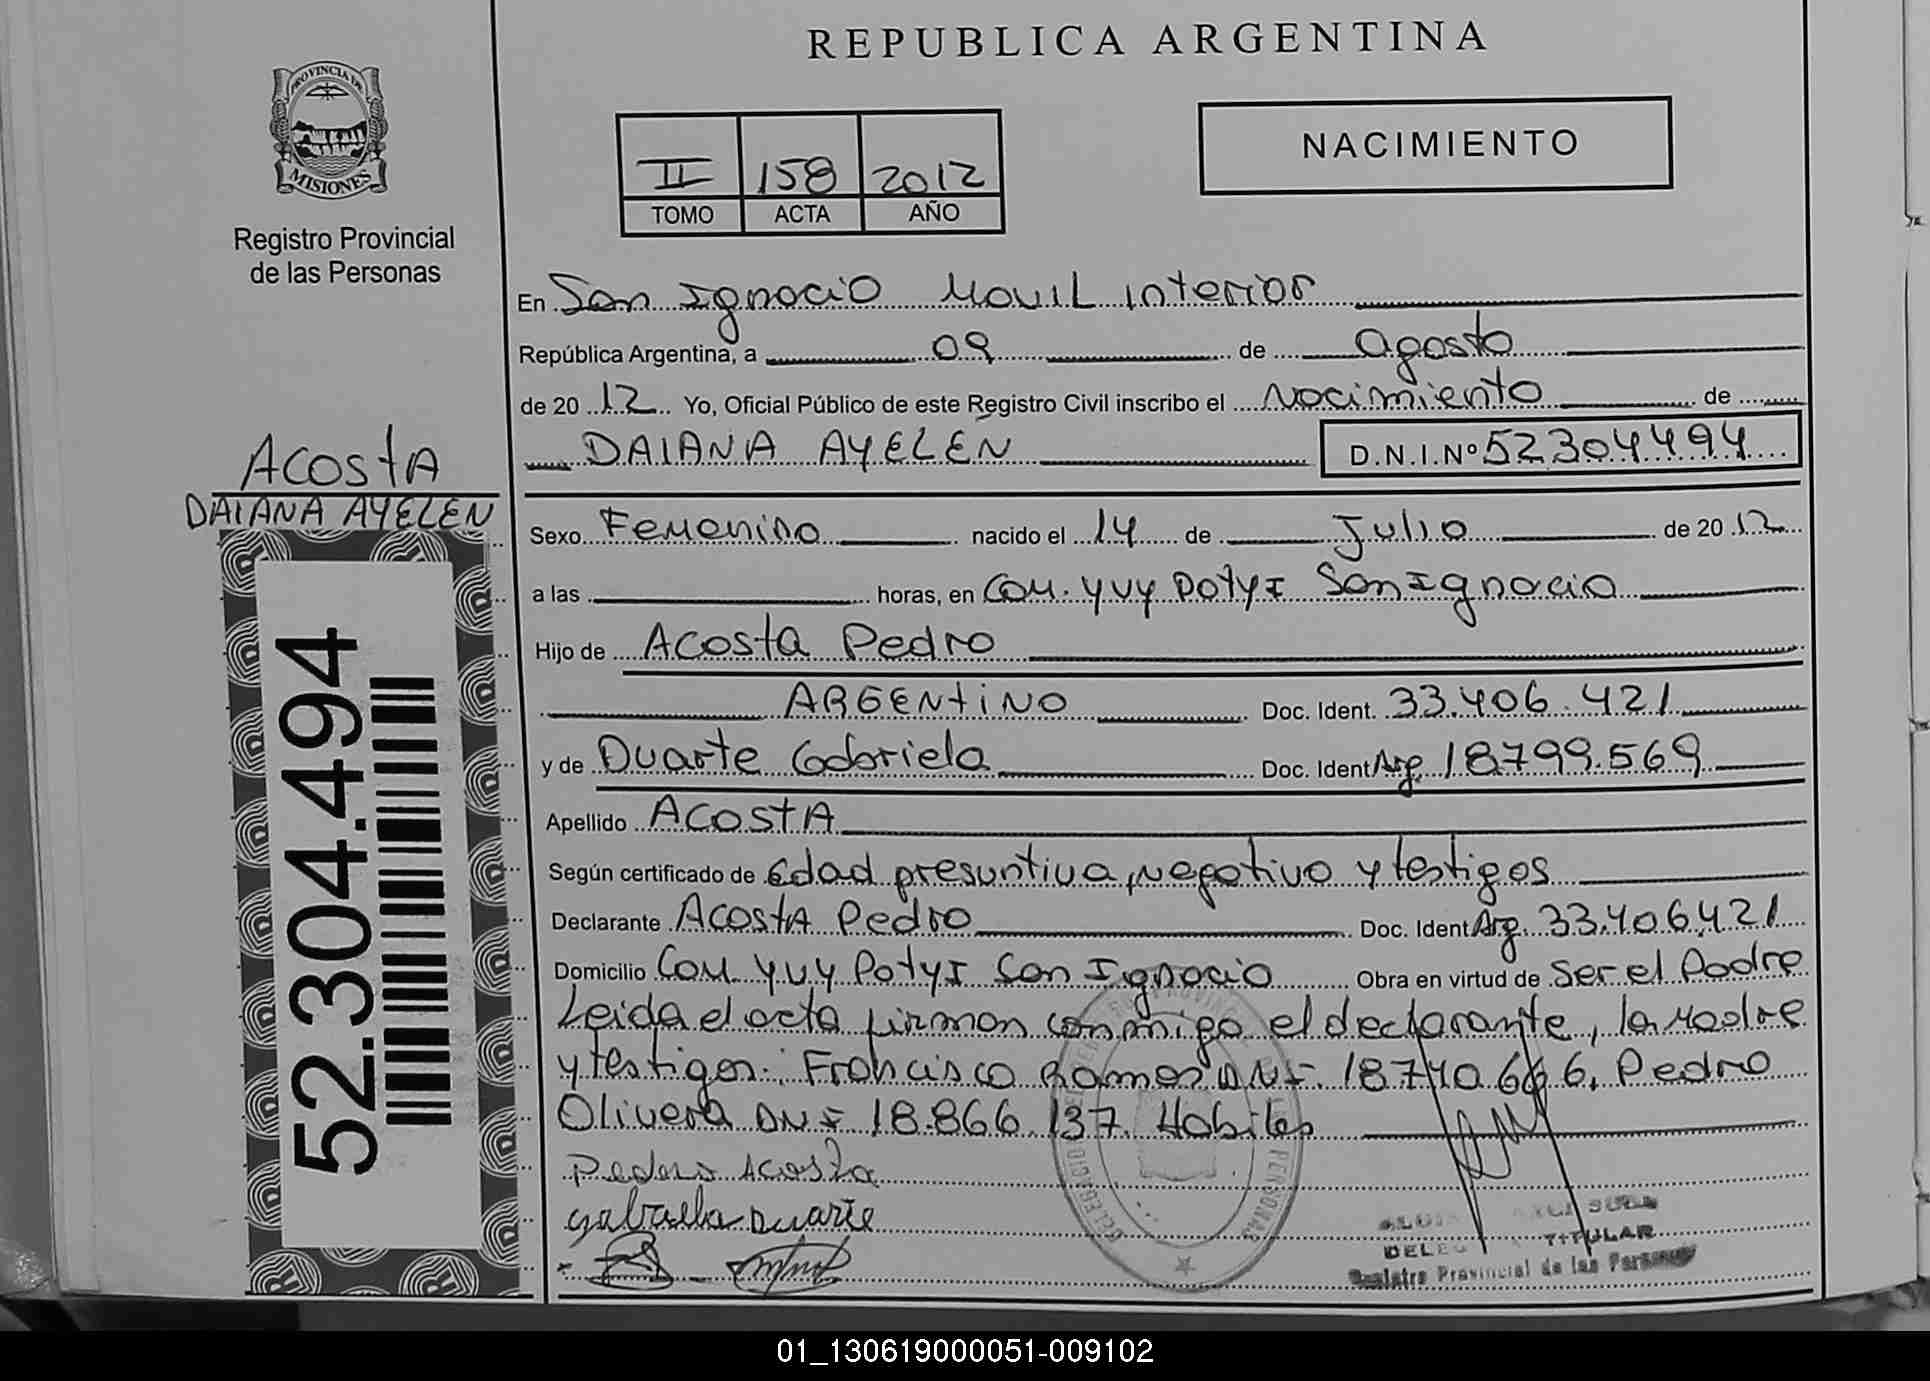 REPUBLICA ARGENTINA
PROVINCIA DE
MISIONES
Registro Provincial
de las Personas
II 158 2012
TOMO ACTA AÑO
NACIMIENTO
En San Ignacio Movil interior
República Argentina, a 09 de agosto
de 2012 Yo, Oficial Público de este Registro Civil inscribo el Nacimiento de
DAIANA AYELÉN D.N.I.Nº 52304494
ACOSTA
DAIANA AYELEN
52.304.494
Sexo Femenino nacido el 14 de Julio de 2012
a las horas, en Com. Yvy Potyi San Ignacio
Hijo de Acosta Pedro
ARGENTINO Doc. Ident. 33.406.421
y de Duarte Gabriela Doc. Ident Arg. 18.799.569
Apellido ACOSTA
Según certificado de Edad presuntiva, negativo y testigos
Declarante Acosta Pedro Doc. Ident Arg. 33.406.421
Domicilio Com. Yvy Potyi San Ignacio Obra en virtud de Ser el Padre
Leida el acta firman conmigo el declarante, la Madre
y testigos: Francisco Ramos DNI. 18740666, Pedro
Olivera DNI 18.866.137. Habiles
Pedro Acosta
gabriela Duarte
TITULAR
Registro Provincial de las Personas
01_130619000051-009102